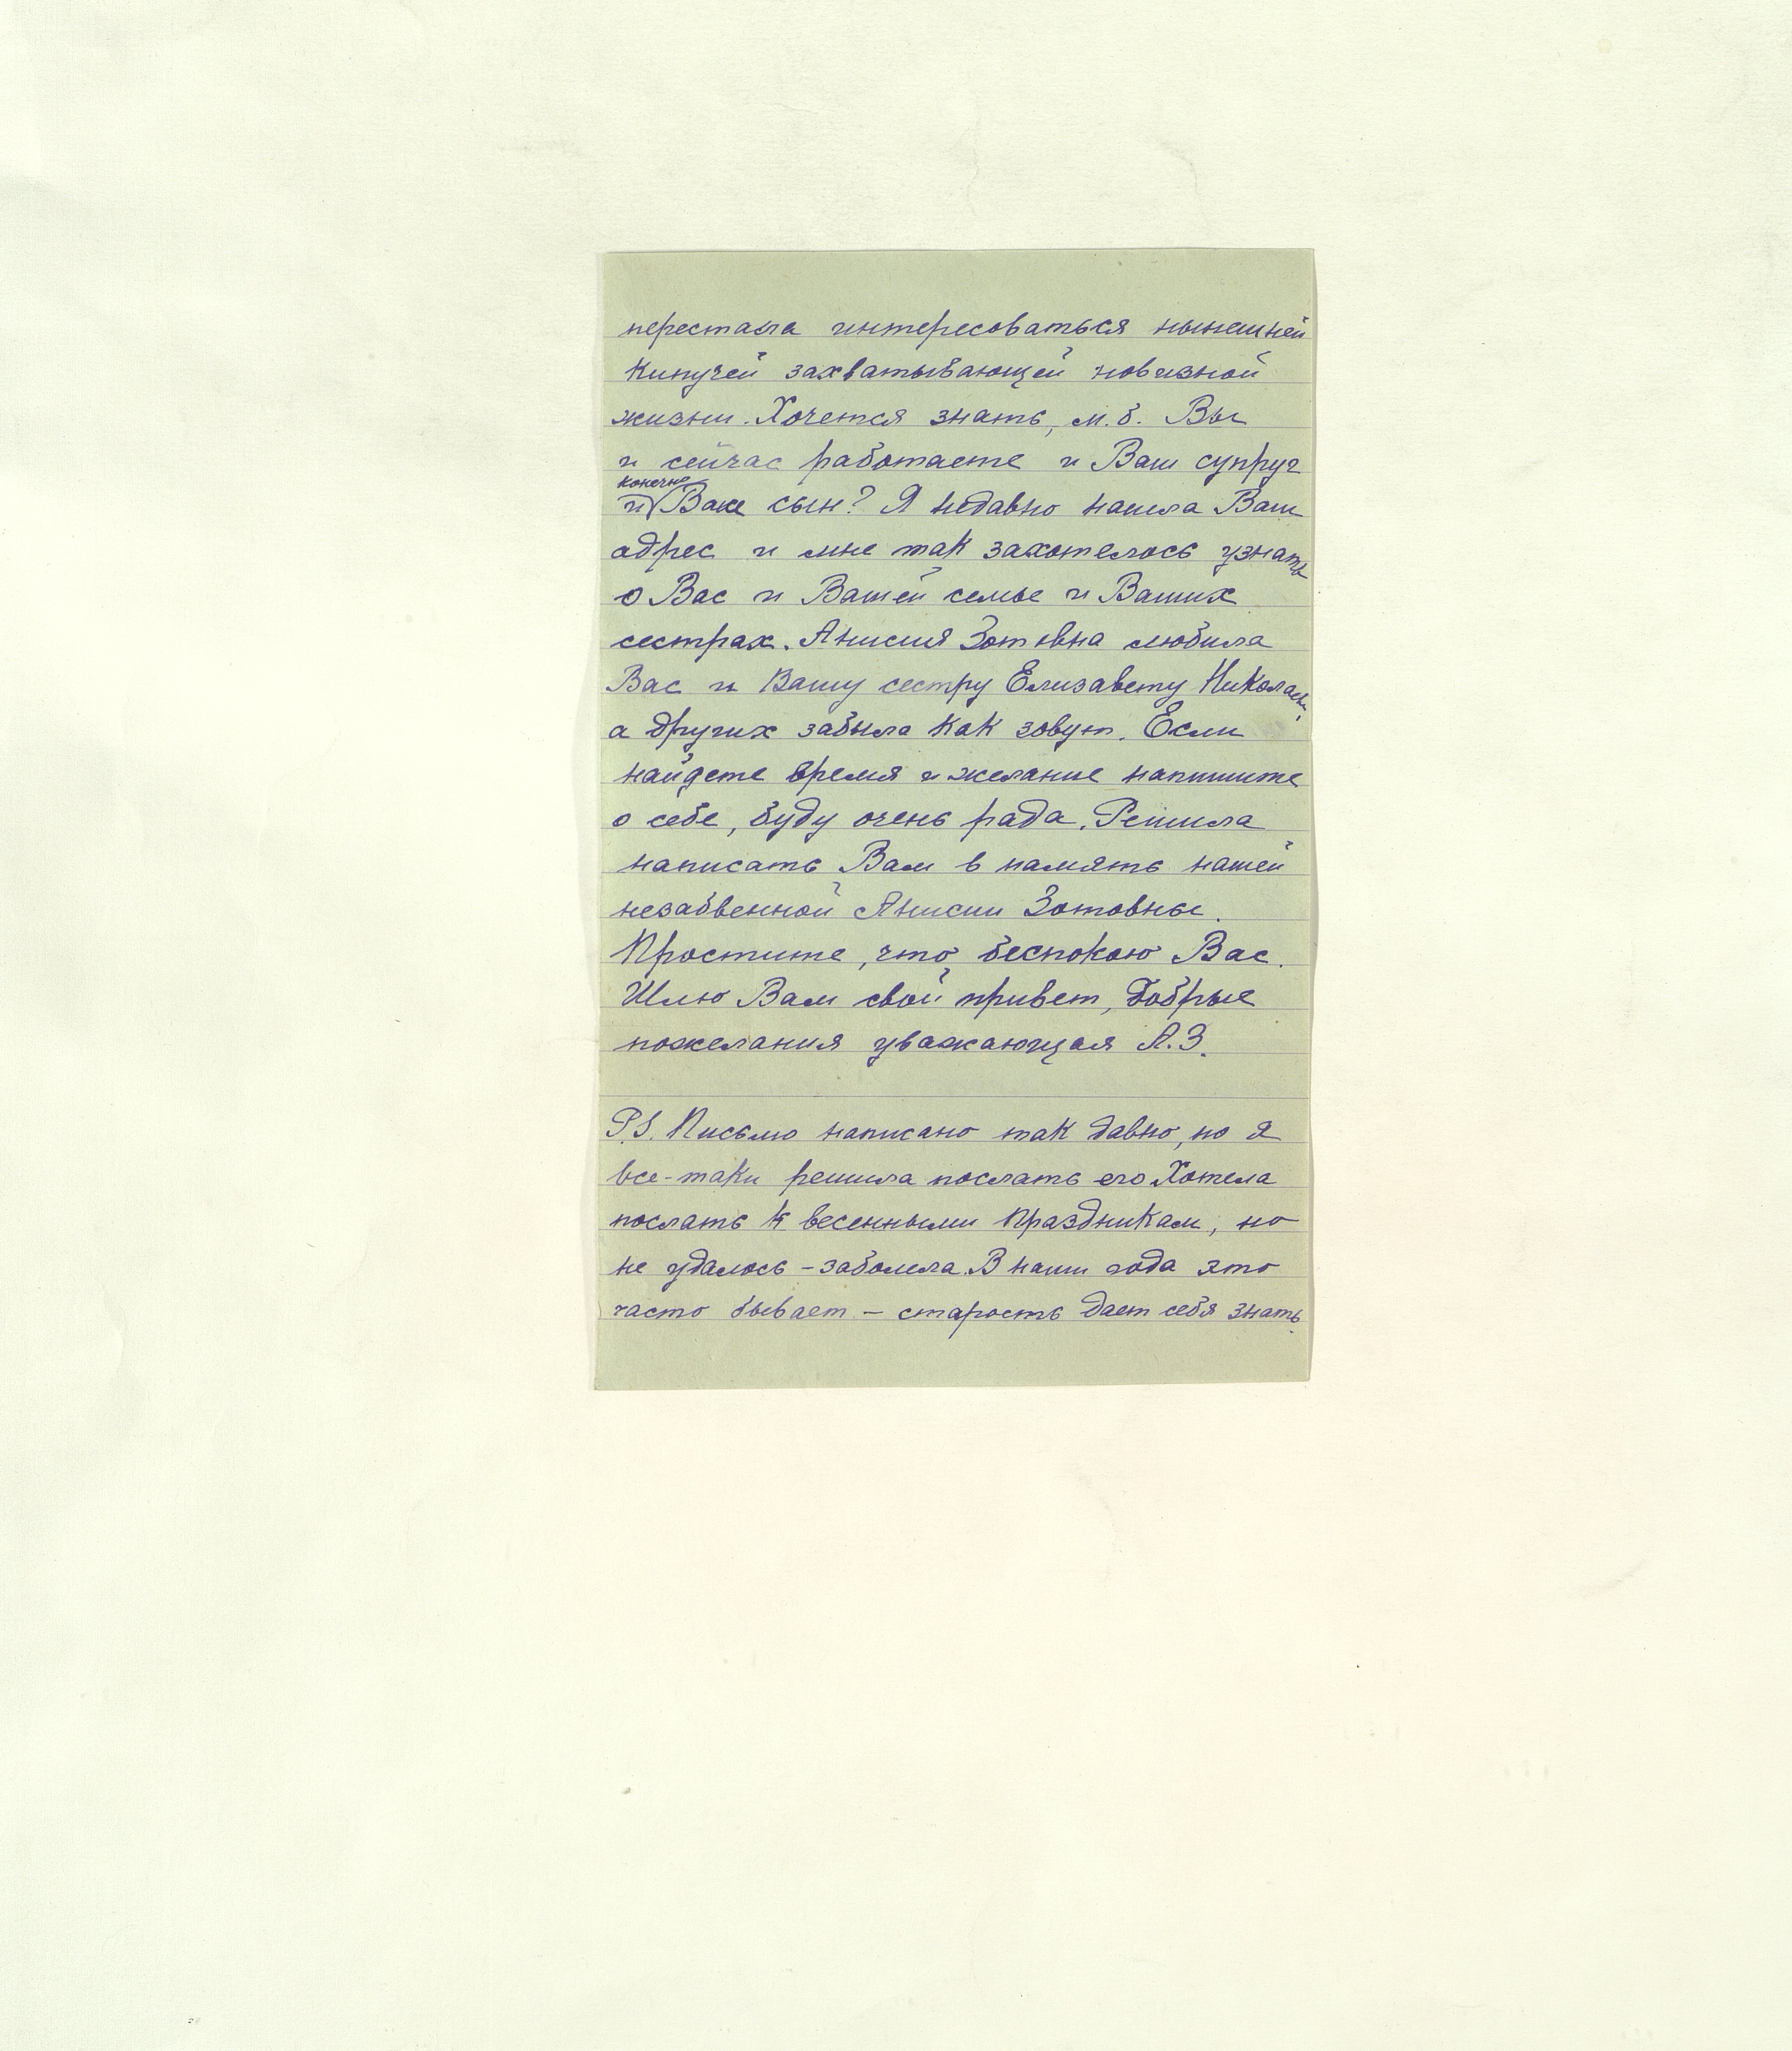 перестала интересоваться нынешней
кипучей захватывающей новизной
жизни. Хочется знать, м.б. Вы
и сейчас работаете и Ваш супруг
конечно
и Ваш сын? Я недавно нашла Ваш
адрес и мне так захотелось узнать
о Вас и Вашей семье и Ваших
сестрах. Анисия Зотовна любила
Вас и Вашу сестру Елизавету Николаевн,
а других забыла как зовут. Если
найдете время и желание напишите
о себе, буду очень рада. Решила
написать Вам в память нашей
незабвенной Анисии Зотовны.
Простите, что беспокою Вас.
Шлю Вам свой привет, добрые
пожелания уважающая А.З.
P.S. Письмо написано так давно, но я
все-таки решила послать его Хотела
послать к весенными праздникам, но
не удалось – заболела. В наши года это
часто бывает – старость дает себя знать.